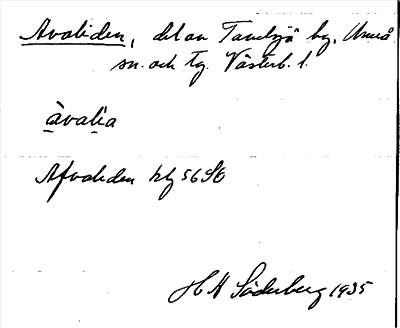 Avaliden, del av Tavelsjö by, Umeå
sn. och tg. Västerb. l.
àvalia
Afvaliden
H A Söderberg 1935